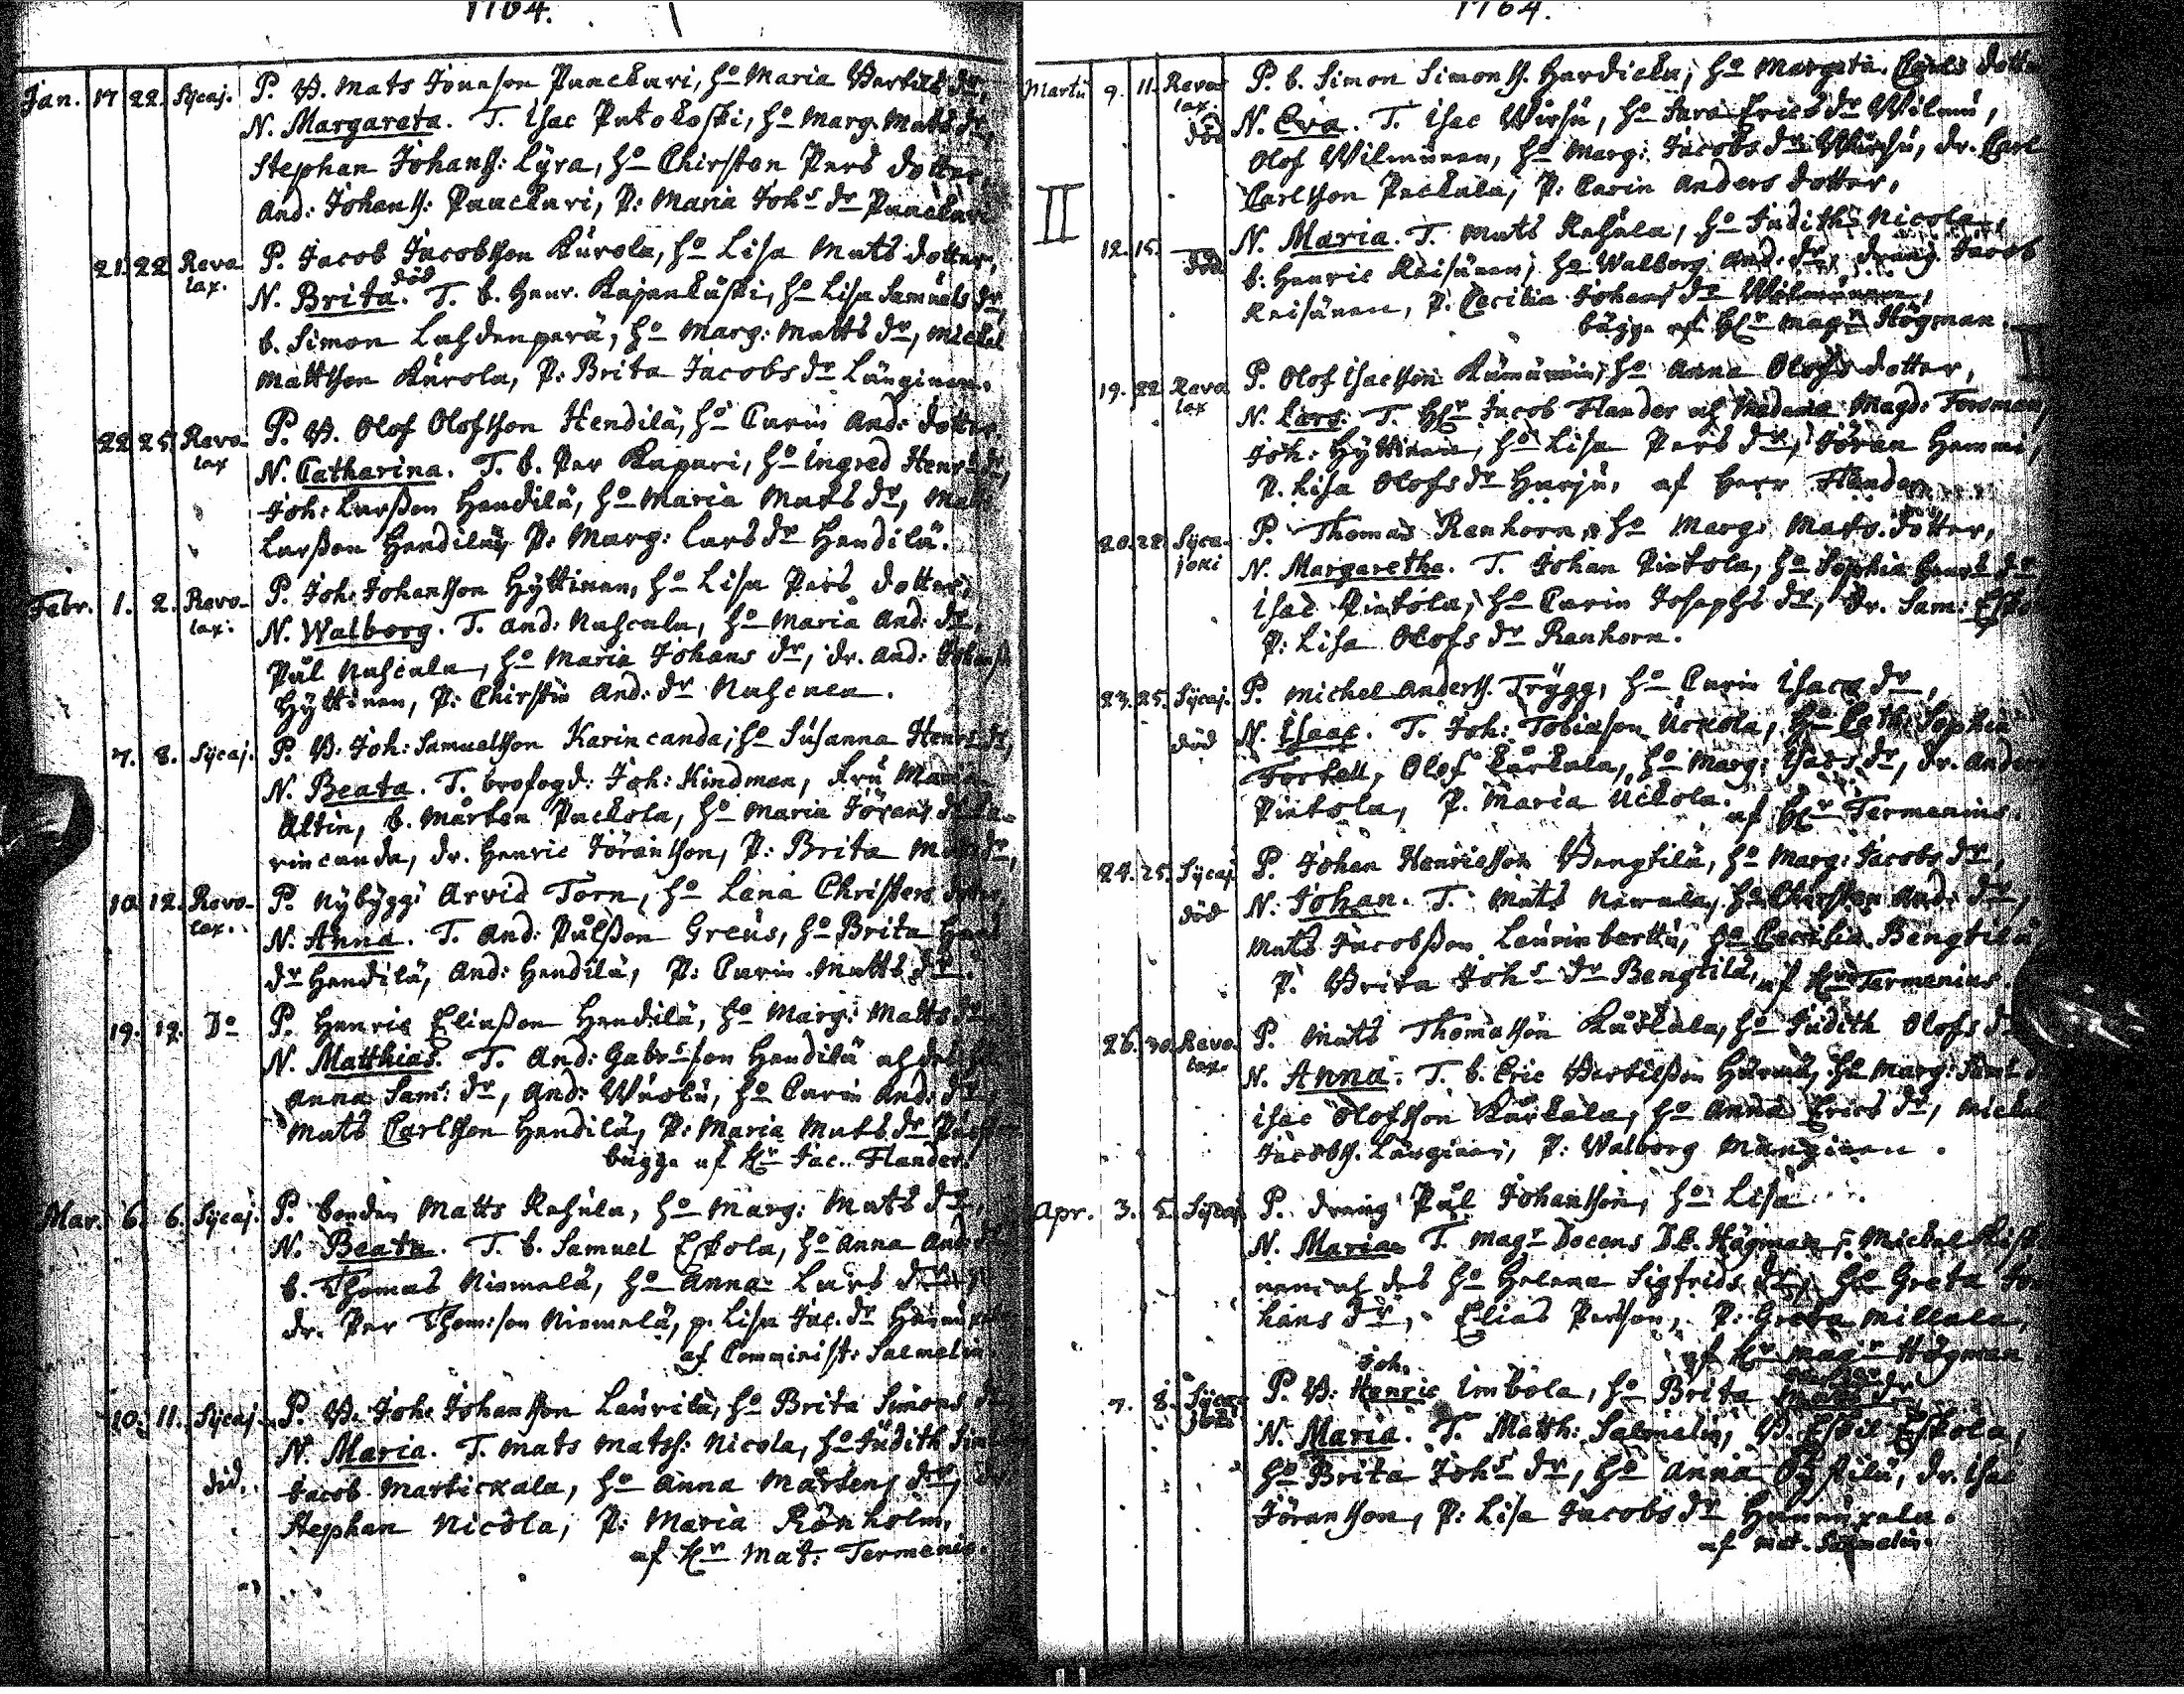 1764.
Jan. 17 22. Sijcaj. P. B. Mats Jonason Paackari, Ho Maria Bertils dr,
N. Margareta. T. Isac Patokoski, Ho Marg. Mats dr,
Stephan Johans: Lyra, Ho Chirstin Pers dotter,
And: Johans: Paackari, P: Maria Johs dr Paackari
21. 22 Revo P. Jacob Jacobsson Kurola, Ho Lisa Mats dotter,
lax. död
N. Brita. T. b. Henr. Kajankoski, Ho Lisa Samuels dr,
b. Simon Lahdenperä, Ho Marg: Matts dr, Mickel
Mattsson Kurola, P: Brita Jacobs dr Länginen.
22 25 Revo- P. B. Olof Olofsson Hendilä, Ho Carin And: dotter
lax N. Catharina. T. b. Per Kupari, Ho Ingred Henrs dr,
Joh: Larsson Hendilä, Ho Maria Mats dr, Mats
Larsson Hendilä, P: Marg: Lars dr Hendilä.
Febr. 1. 2. Revo- P. Joh: Johansson Hyttinen, Ho Lisa Pers dotter,
lax: N. Walborg. T. And: Nuscala, Ho Maria And: dr,
Pål Nuscala, Ho Maria Johans dr, dr. And: Johanss
Hyttinen, P: Chirstin And: dr Nuscala.
7. 8. Sijcaj. P. B. Joh: Samuelsson Karincanda, Ho Susanna Henrs dr,
N. Beata. T. brofogd: Joh: Kindman, Fru Maria
Altin, b. Mårten Packola, Ho Maria Jörans dr Ka-
rincanda, dr. Henric Jöransson, P: Brita Mats dr,
10. 12. Revo- P. Nybygg: Arvid Torn, Ho Lena Christers dotter
lax. N. Anna. T. And: Pålsson Greus, Ho Brita Hans
dr Hendilä, And: Hendilä, P: Carin Matts dr.
19. 19. Do P. Henric Eliasson Hendilä, Ho Marg: Matts dr
N. Matthias. T. And: Gabrsson Hendilä
Anna Sam: dr, And: Ho Carin And: dr,
Mats Carlsson Hendilä, P: Maria Mats dr
bägge af Hr Jac. Flander.
Mar. 6. 6. Sijcaj. P. bonden Matts Rahula, Ho Marg: Mats dr,
N. Beata. T. b. Samuel Eskola, Ho Anna And: dr
b. Thomas Niemelä, Ho Anna Lars dr,
dr. Per Thom:son Niemelä, p. Lisa Jac. dr
af Comminist: Salmelin.
10. 11. Sijcaj. P. B. Joh: Johansson Laurila, Ho Brita Simons dr
N. Maria. T. Mats Matss: Nicola, Ho Judith
död. Jacob Martickala, Ho Anna Mårtens dr,
Stephan Nicola, P: Maria Rönholm,
af Hr Mat: Termenis.
1764.
Martii 9. 11. Revo P. b. Simon Simonss. Hardicka, Ho Margeta. Carls dotter
lax.
död N. Eva. T. Isac Wirsu, Ho Sara Erics dr Wilmi,
Olof Wilmunen, Ho Marg: Jacobs dr Wirsu, dr. Carl
Carlsson Packala, P: Carin Anders dotter,
12. 15. död N. Maria. T. Mats Rahula, Ho Judith Nicola,
b: Henric Reisänen, Ho Walborg And: dr, dräng. Jacob
Reisänen, P. Cecilia Johans dr
bägge af Hr Magr Högman.
II
19. 22 Revo P. Olof Isacsson Ho Anna Olofs dotter,
lax N. Lars. T. Hr Jacob Flander af Madame Magd: Forsman,
Joh: Hyttinen, Ho Lisa Pers dr, Jöran Hemmi,
P. Lisa Olofs dr Harju, af Herr Flander
20. 22 Sijca- P. Thomas Renhorn, Ho Marg: Mats. dotter,
joki N. Margaretha. T. Johan Pietola, Ho Sophia Henrs dr
Isac Pietola, Ho Carin Josephs dr, Dr. Sam:
P: Lisa Olofs dr Renhorn.
23. 25. Sijcaj. P. Michel Anderss. Trygg, Ho Carin Isacs dr,
död N. Isaac. T. Joh: Tobiasson Uckola, Ho Cath: Sophia
Forsell, Olof Karkala, Ho Marg: Isacs dr, dr. Anders
Pietola, P. Maria Uckola.
af Hr Termenius.
24. 25. Sijcaj P. Johan Henricsson Bengtilä, Ho Marg: Jacobs dr,
död N. Johan. T. Mats Newala, Ho Chirstin And: dr,
Mats Jacobsson Laurinberttu, Ho Cecilia Bengtilä
P. Brita Johs dr Bengtilä, af Hr Termenius.
26. 30. Revo P. Mats Thomasson Karkala, Ho Judith Olofs dr
lax. N. Anna. T. b. Eric Bertilsson Hurmä, Ho Marg:
Isac Olofsson Karkala, Ho Anna Erics dr, Mickel
Jacobss. Länginen, P: Walborg Manginen.
Apr. 3. 5. Sijcaj P. dräng Pål Johansson, Ho Lisa
N. Maria. T. Magr Docens Högman, Mickel
Ho Helena Sigfrids dr, Ho Greta Jo
hans dr, Elias Persson, P: Greta Millala,
af Hr Magr Högman
Joh.
7. 8. Sijca- P. B: Henric Imbola, Ho Brita
joki N. Maria. T. Matth: Salmelin, B. Eskil Eskola,
Ho Brita Johs dr, Ho Anna dr. Isac
Jöransson, P: Lisa Jacobs dr
af Mat. Salmelin.